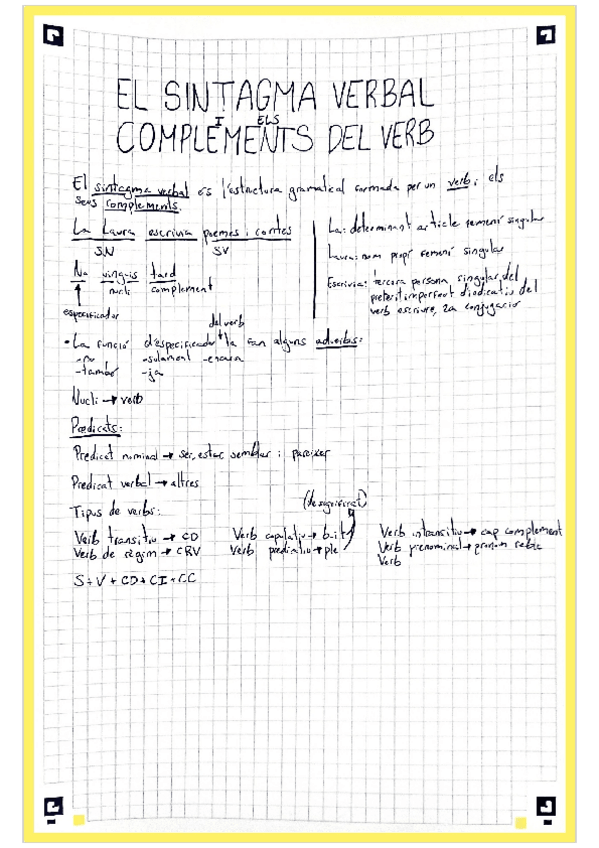 EL SINTAGMA VERBAL
I ELS
COMPLEMENTS DEL VERB
El sintagma verbal és l'estructura gramatical formada per un verb i els
seus complements.
La Laura escrivia poemes i contes
SN SV
No vinguis tard
nucli complement
especificador
La: determinant article femení singular
Laura: nom propi femení singular
Escrivia: tercera persona singular del
preterit imperfect d'indicatiu del
verb escriure, 2a conjugació
del verb
•La funció d'especificador la fan alguns adverbis:
-no -solament -encara
-també -ja
Nucli → verb
Predicats:
Predicat nominal → ser, estar semblar i pareixer
Predicat verbal → altres
Tipus de verbs:
(de significat)
Verb transitiu → CD
Verb de règim → CRV
Verb copulatiu → buit
Verb predicatiu → ple
Verb intransitiu → cap complement
Verb prenominal → pronom feble
Verb
S+V+CD+CI+CC